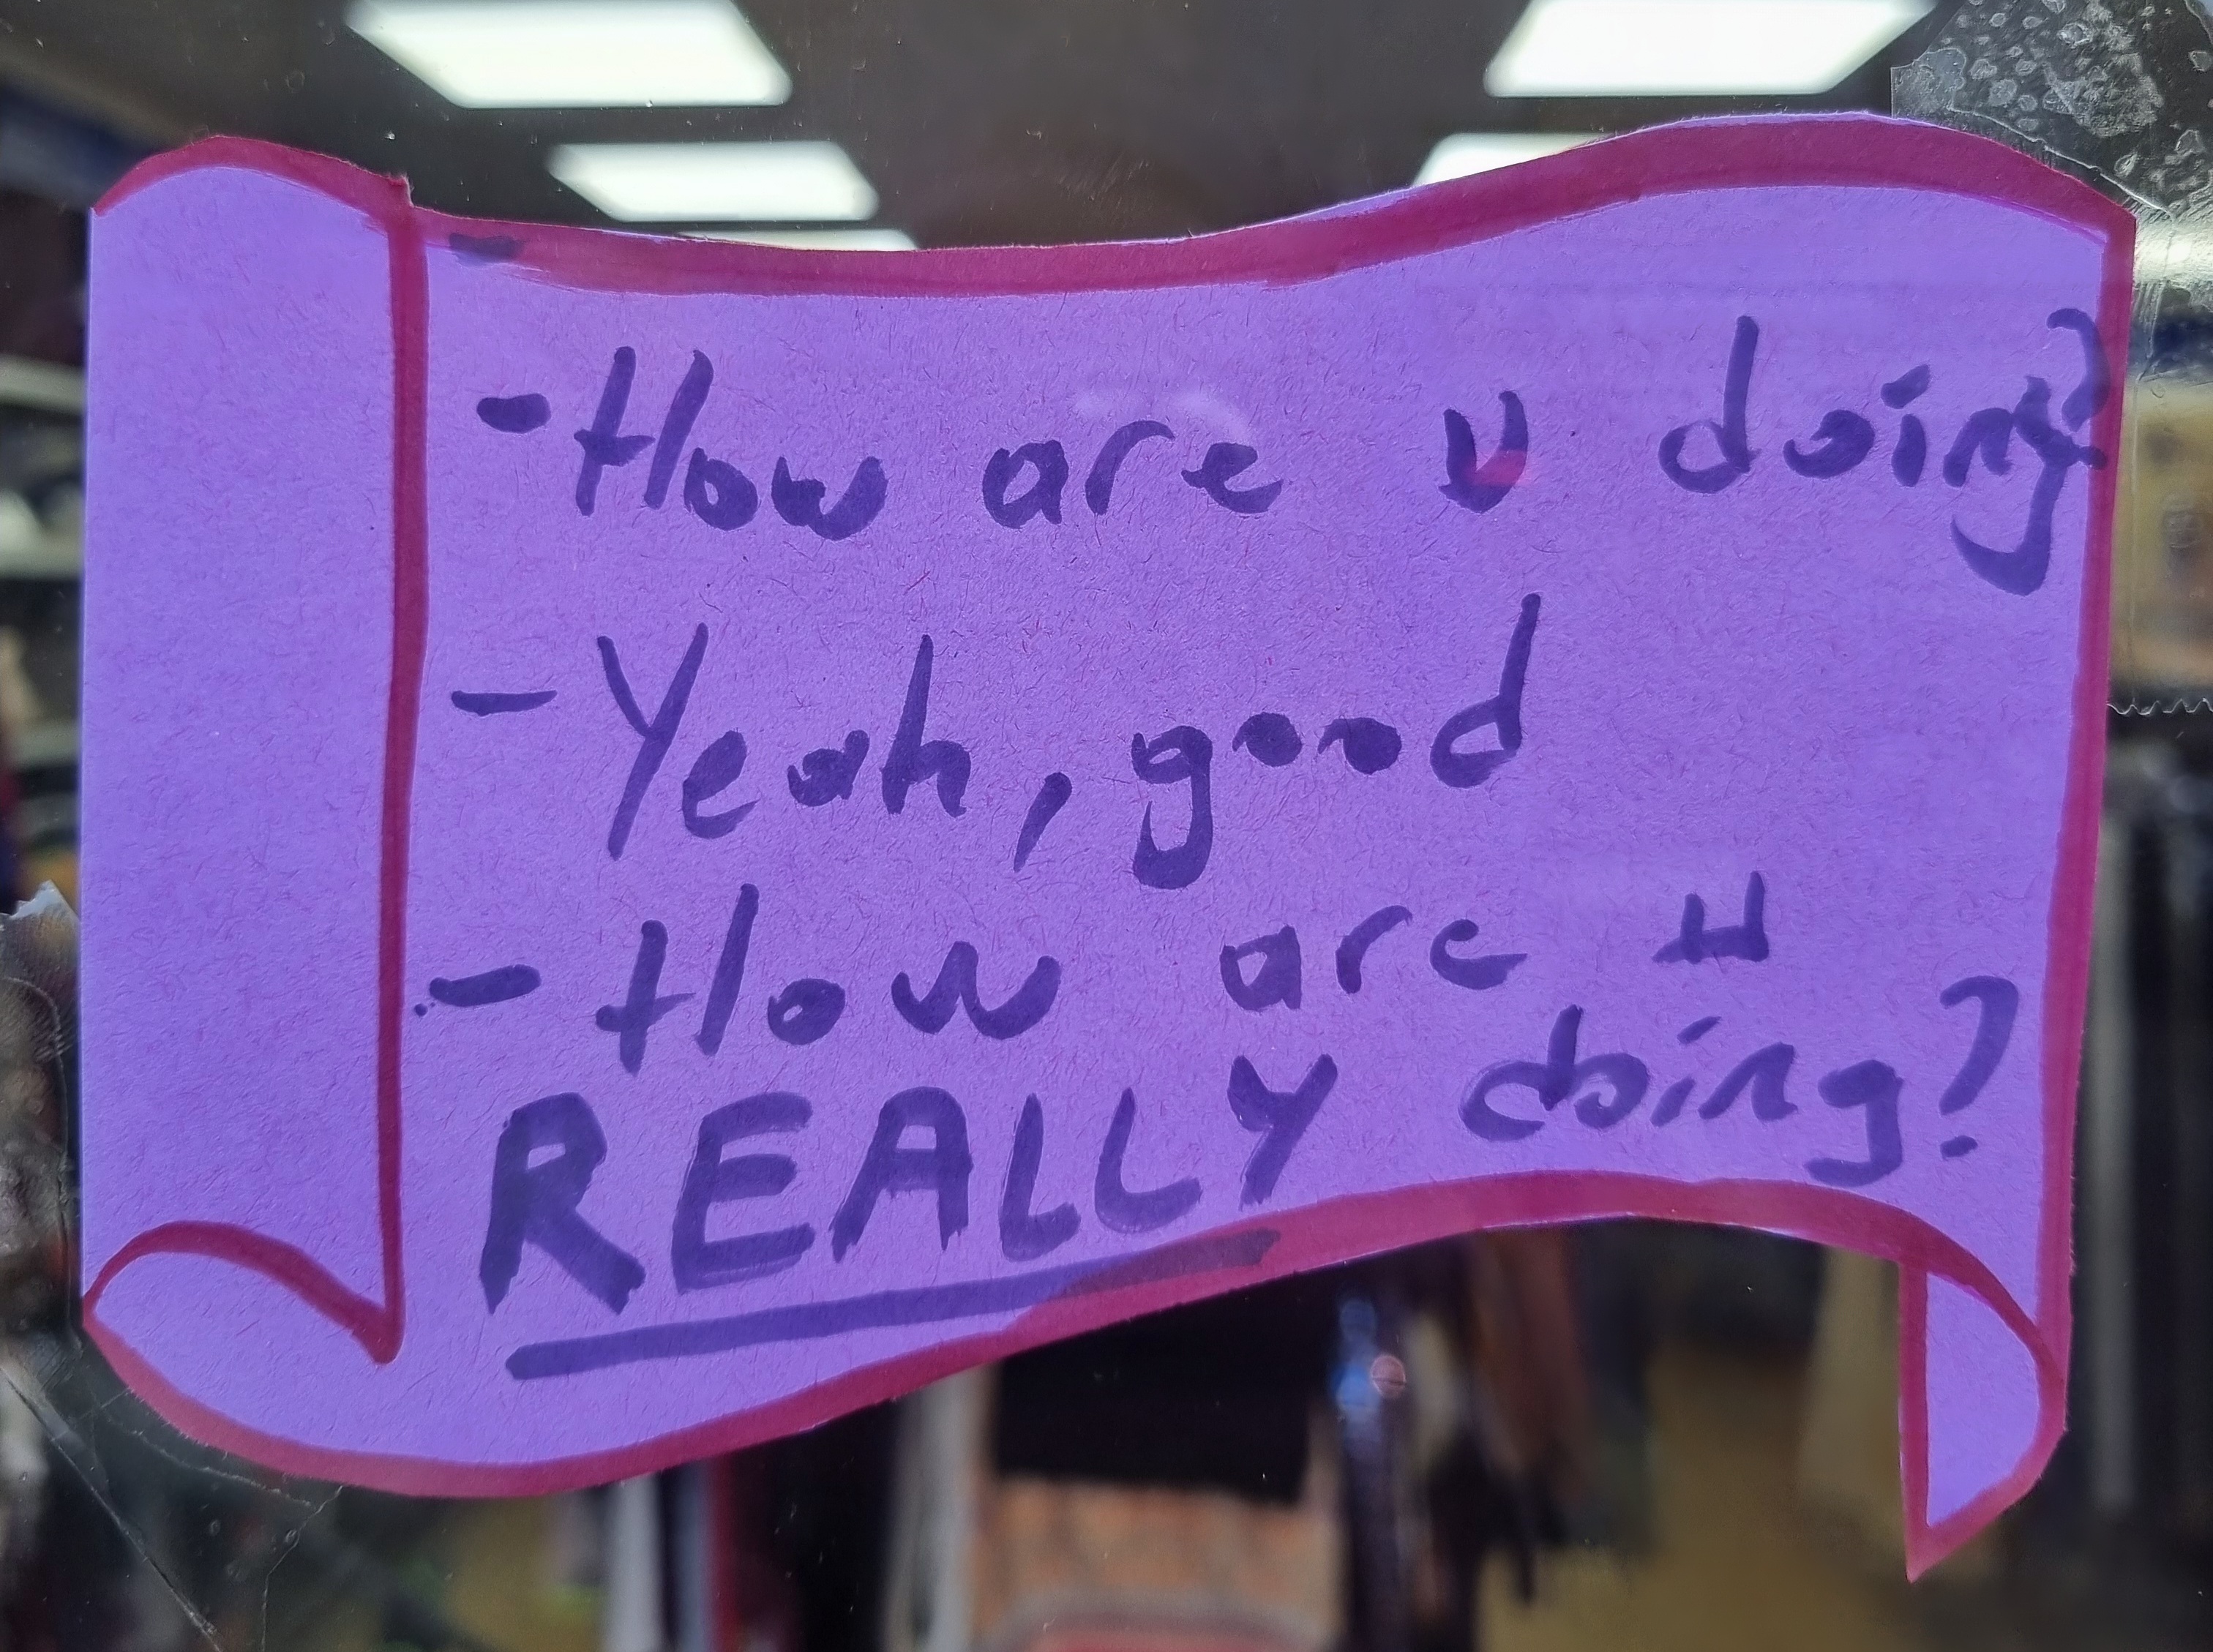 - How are u doing?
- Yeah, good
- How are u
REALLY doing?